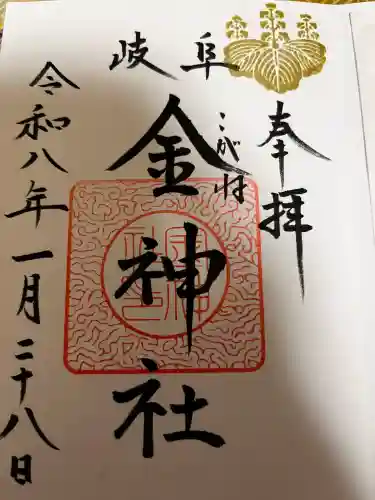 奉拝
岐阜
金神社
こがね
令和八年一月二十八日